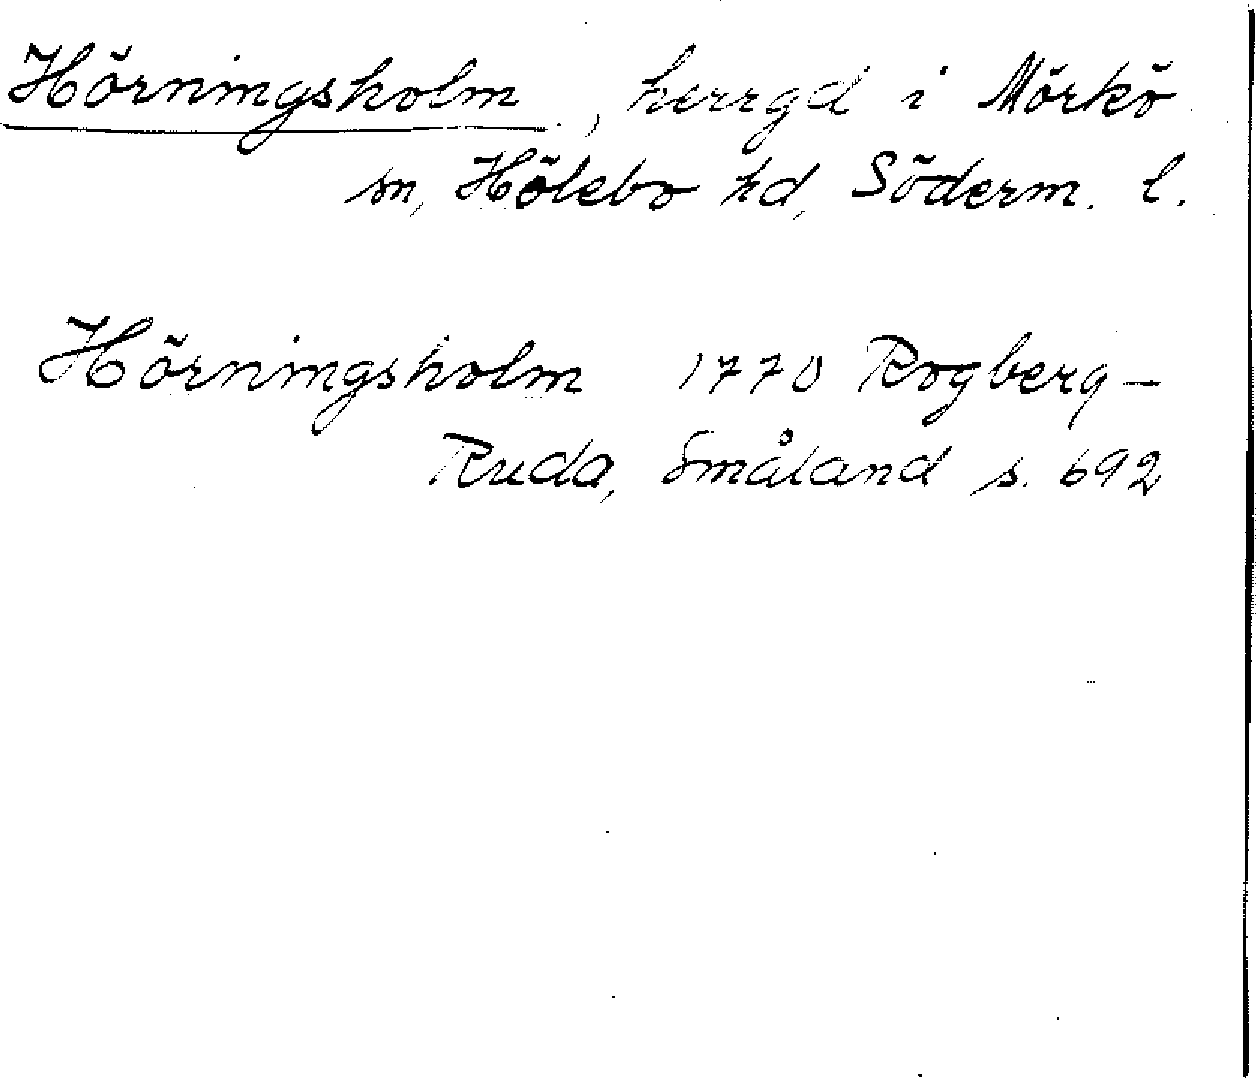 Hörningsholm, herrgd i Mörkö
sn, Hölebo hd, Söderm. l.
Hörningsholm 1770 Rogberg-
Ruda, Småland s. 692